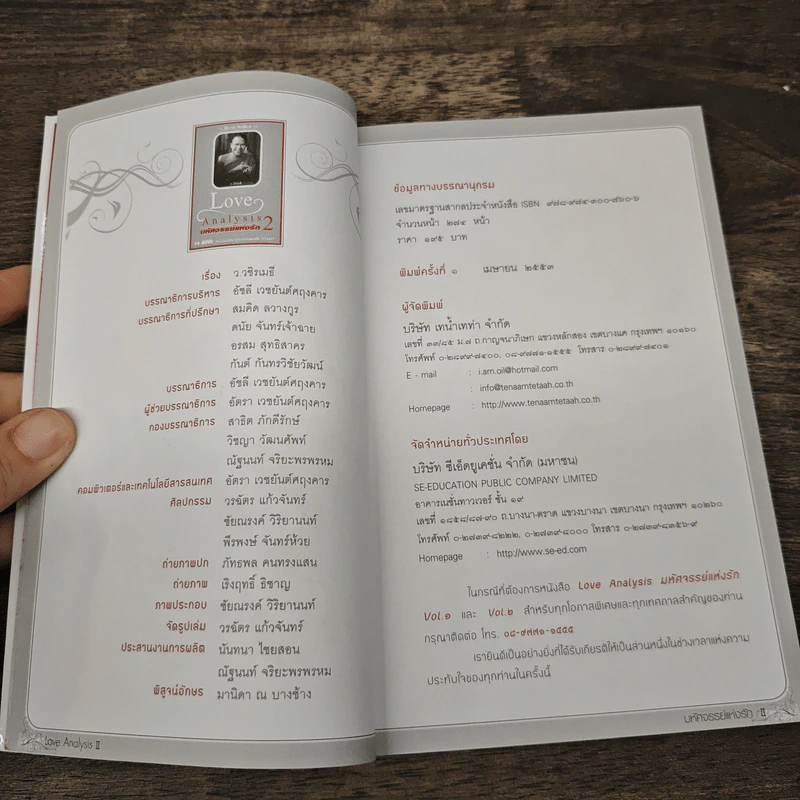 Love
Analysis 2
มหัศจรรย์แห่งรัก
เรื่อง ว.วชิรเมธี
บรรณาธิการบริหาร อัชลี เวชยันต์ศฤงคาร
บรรณาธิการที่ปรึกษา สมคิด ลวางกูร
ดนัย จันทร์เจ้าฉาย
อรสม สุทธิสาคร
กันต์ กันทรวิชัยวัฒน์
บรรณาธิการ อัชลี เวชยันต์ศฤงคาร
ผู้ช่วยบรรณาธิการ อัตรา เวชยันต์ศฤงคาร
กองบรรณาธิการ สาธิต ภักดีรักษ์
วิชญา วัฒนศัพท์
ณัฐนนท์ จริยะพรพรหม
คอมพิวเตอร์และเทคโนโลยีสารสนเทศ อัตรา เวชยันต์ศฤงคาร
ศิลปกรรม วรฉัตร แก้วจันทร์
ชัยณรงค์ วิริยานนท์
พีรพงษ์ จันทร์ห้วย
ถ่ายภาพปก ภัทธพล คนทรงแสน
ถ่ายภาพ เริงฤทธิ์ ธิชาญ
ภาพประกอบ ชัยณรงค์ วิริยานนท์
จัดรูปเล่ม วรฉัตร แก้วจันทร์
ประสานงานการผลิต นันทนา ไชยสอน
ณัฐนนท์ จริยะพรพหม
พิสูจน์อักษร มานิดา ณ บางช้าง
Love Analysis II
ข้อมูลทางบรรณานุกรม
เลขมาตรฐานสากลประจำหนังสือ ISBN ๙๗๘-๙๗๔-๓๐๐-๘๖๐-๖
จำนวนหน้า ๒๗๔ หน้า
ราคา ๑๙๕ บาท
พิมพ์ครั้งที่ ๑ เมษายน ๒๕๕๓
ผู้จัดพิมพ์
บริษัท เทน้ำเทท่า จำกัด
เลขที่ ๓๓/๘๕ ม.๗ ถ.กาญจนาภิเษก แขวงหลักสอง เขตบางแค กรุงเทพฯ ๑๐๑๖๐
โทรศัพท์ ๐-๒๘๙๙-๗๔๐๐, ๐๘-๙๗๗๑-๑๕๕๕ โทรสาร ๐-๒๘๙๙-๗๔๐๑
E - mail : i.am.oil@hotmail.com
: info@tenaamtetaah.co.th
Homepage : http://www.tenaamtetaah.co.th
จัดจำหน่ายทั่วประเทศโดย
บริษัท ซีเอ็ดยูเคชั่น จำกัด (มหาชน)
SE-EDUCATION PUBLIC COMPANY LIMITED
อาคารเนชั่นทาวเวอร์ ชั้น ๑๙
เลขที่ ๑๘๕๘/๘๗-๙๐ ถ.บางนา-ตราด แขวงบางนา เขตบางนา กรุงเทพฯ ๑๐๒๖๐
โทรศัพท์ ๐-๒๗๓๙-๘๒๒๒, ๐-๒๗๓๙-๘๐๐๐ โทรสาร ๐-๒๗๓๙-๘๓๕๖-๙
Homepage : http://www.se-ed.com
ในกรณีที่ต้องการหนังสือ Love Analysis มหัศจรรย์แห่งรัก
Vol.๑ และ Vol.๒ สำหรับทุกโอกาสพิเศษและทุกเทศกาลสำคัญของท่าน
กรุณาติดต่อ โทร. ๐๘-๙๗๗๑-๑๕๕๕
เรายินดีเป็นอย่างยิ่งที่ได้รับเกียรติให้เป็นส่วนหนึ่งในช่วงเวลาแห่งความ
ประทับใจของทุกท่านในครั้งนี้
มหัศจรรย์แห่งรัก II